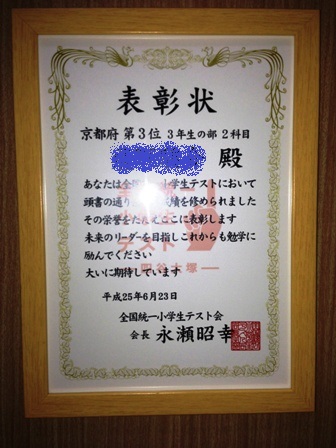 表彰状
京都府 第3位 3年生の部 2科目
殿
あなたは全国 小学生テストにおいて
頭書の通り 績を修められました
その栄誉をたたえここに表彰します
未来のリーダーを目指しこれからも勉学に
励んでください
大いに期待しています
テスト
四谷大塚
平成25年6月23日
全国統一小学生テスト会
会長 永瀬昭幸